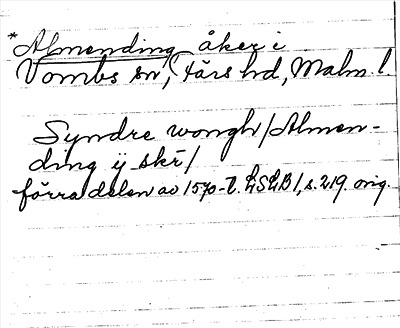 *Almending åker i
Vombs sn, Färs hd, Malm. l.
Syndre wongh/Almen-
ding ij skr/
förra delen av 1570-t. LSLB1, s. 219. orig.